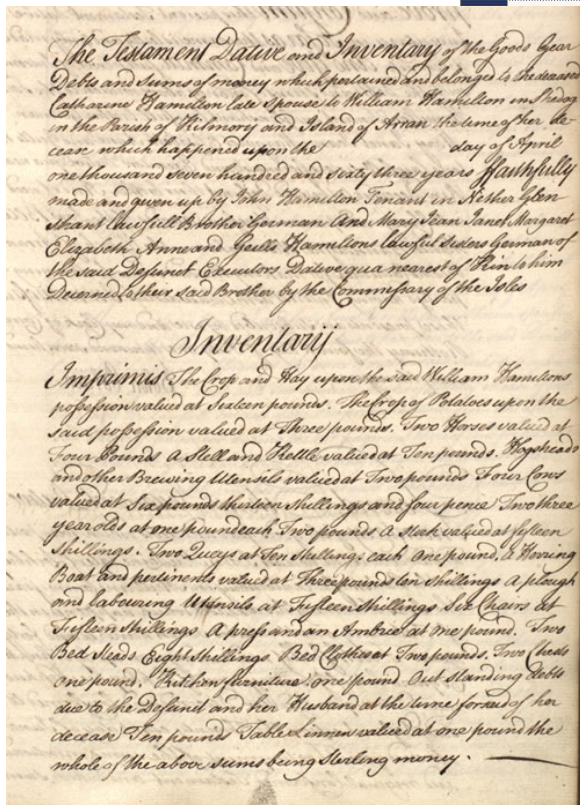 The Testament Dative and Inventary of the Goods Gear
Debts and sums of money which pertained and belonged to the deceasd
Catharine Hamilton late Spouse to William Hamilton in Shedog
in the Parish of Kilmory and Island of Arran the time of her de-
cease which happened upon the day of April
one thousand seven hundred and sixty three years ffaithfully
made and given up by John Hamilton Tenant in Nether Glen
shant lawfull Brother German And Mary Jean Janet Margaret
Elizabeth Anne and Grills Hamiltons lawful Sisters German of
the said Defunct Executors Dative qua nearest of Kin to him
Decerned to their said Brother by the Commissary of the Isles
Inventary
Imprimis The Crop and Hay upon the said William Hamiltons
possession valued at Sixteen pounds. The Crop of Potatoes upon the
said possession valued at Three pounds. Two Horses valued at
Four Pounds A Stell and Kettle valued at Ten pounds. Hogsheads
and other Brewing Utensils valued at Two pounds Four Cows
valued at Six pounds thirteen Shillings and four pence Two three
year olds at one pound each Two pounds A Stirk valued at fifteen
Shillings. Two Queys at Ten Shillings each One pound. A Herring
Boat and pertinents valued at Three pounds ten Shillings A plough
and labouring Utensils at Fifteen Shillings Six Chairs at
Fifteen Shillings A press and an Ambrie at one pound. Two
Bed Steads Eight Shillings Bed Clothes at Two pounds. Two Chests
one pound. Kitchen furniture one pound Out standing debts
due to the Defunct and her Husband at the time forsaid of her
decease Ten pounds Table Linnen valued at one pound the
whole of the above sums being Sterling money.